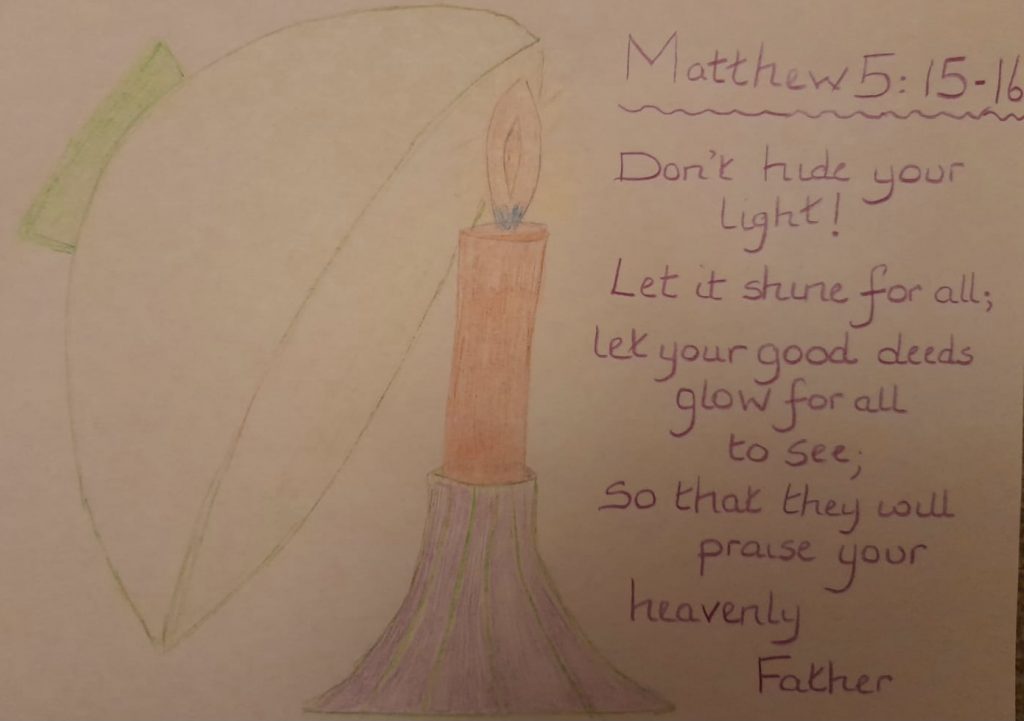 Matthew 5:15-16
Don't hide your
Light!
Let it shine for all;
let your good deeds
glow for all
to see;
So that they will
praise your
heavenly
Father